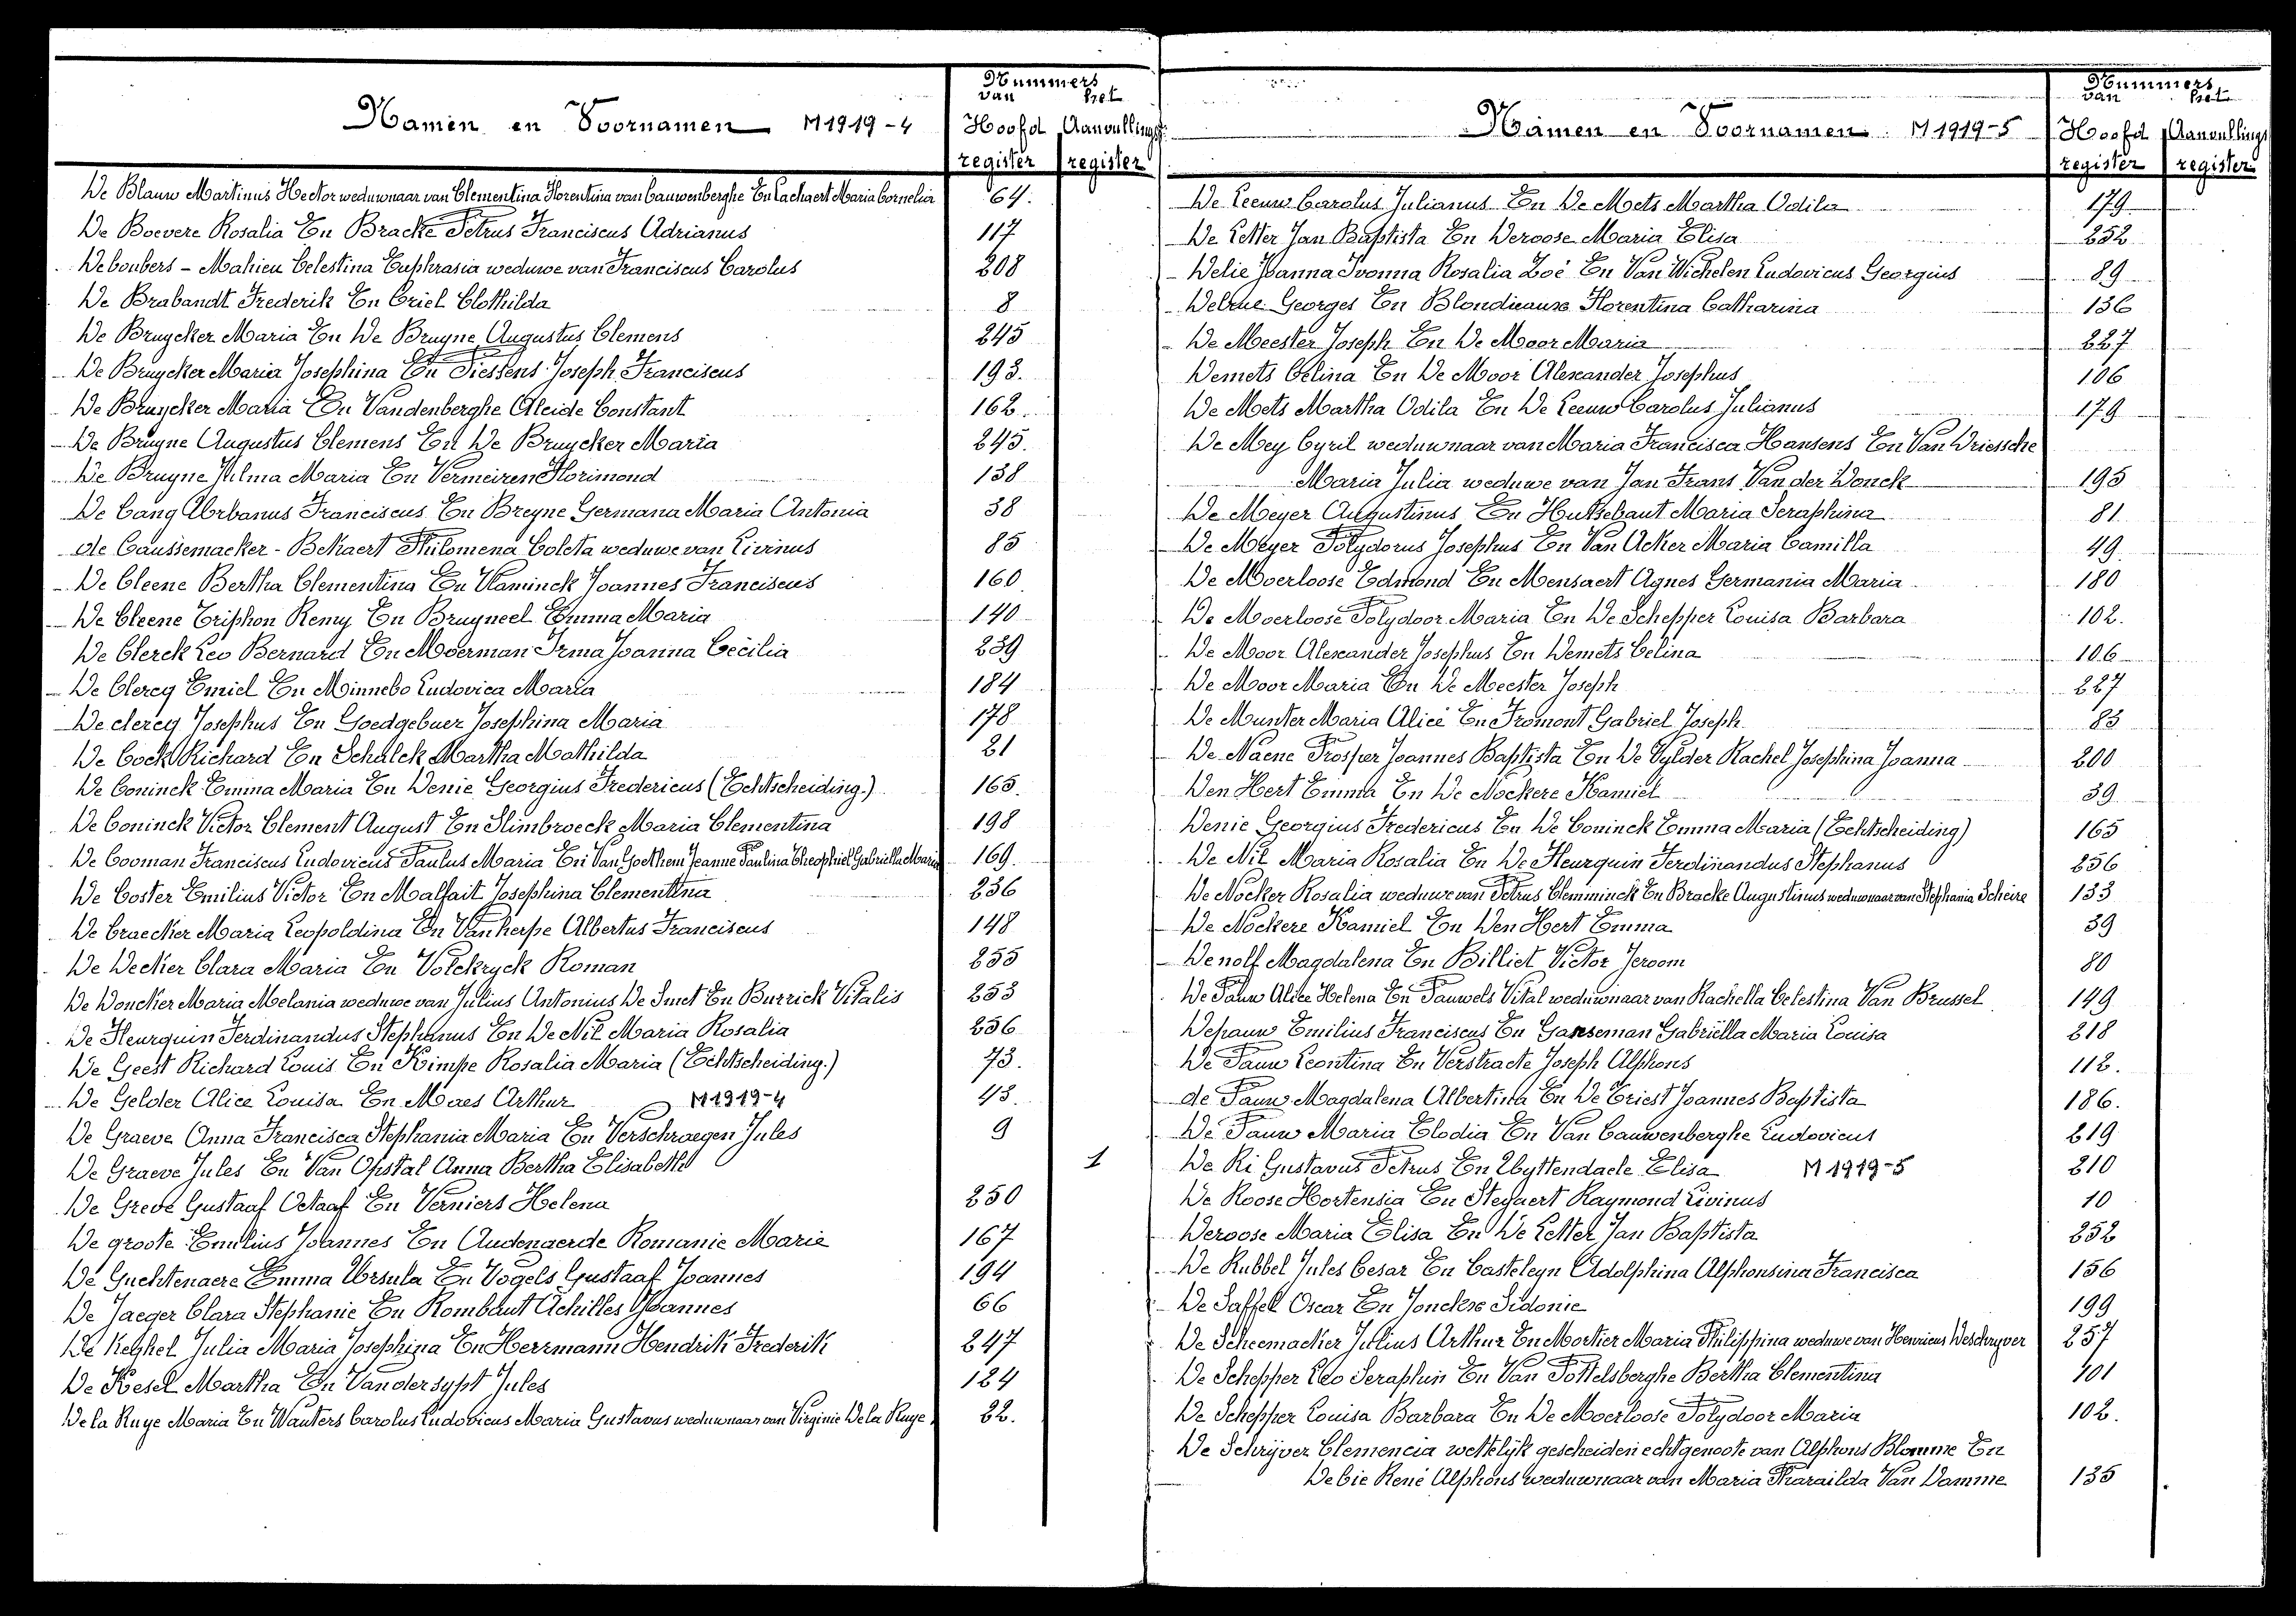 Namen en Voornamen M1919-4
Nummers
van het
Hoofd Aanvullings
register register
De Blauw Martinus Hector weduwnaar van Clementina Florentina van Cauwenberghe En Lachaert Maria Cornelia 64.
De Boevere Rosalia En Bracke Petrus Franciscus Adrianus 117
Deboubers - Mahieu Celestina Euphrasia weduwe van Franciscus Carolus 208
De Brabandt Frederik En Criel Clothilda 8
De Bruycker Maria En De Bruyne Augustus Clemens 245
De Bruycker Maria Josephina En Piessens Joseph Franciscus 193.
De Bruycker Maria En Vandenberghe Aleide Constant 162.
De Bruyne Augustus Clemens En De Bruycker Maria 245.
De Bruyne Wilma Maria En Vermeiren Florimond 138
De Cang Urbanus Franciscus En Breyne Germana Maria Antonia 38
de Caussemacker - Bekaert Philomena Coleta weduwe van Livinus 85
De Cleene Bertha Clementina En Vlaminck Joannes Franciscus 160
De Cleene Triphon Remy En Bruyneel Emma Maria 140
De Clerck Leo Bernard En Moerman Irma Joanna Cecilia 239
De Clercq Emiel En Minnebo Ludovica Maria 184
De clercq Josephus En Goedgebuer Josephina Maria 178
De Cock Richard En Schalck Martha Mathilda 21
De Coninck Emma Maria En Denie Georgius Fredericus (Echtscheiding.) 165.
De Coninck Victor Clement August En Slimbroeck Maria Clementina 198
De Cooman Franciscus Ludovicus Paulus Maria En Van Goethem Jeanne Paulina Theophiel Gabriella Maria 169.
De Coster Emilius Victor En Malfait Josephina Clementina 236
De Craecker Maria Leopoldina En Vanherpe Albertus Franciscus 148
De Decker Clara Maria En Volckryck Roman 255
De Doncker Maria Melania weduwe van Julius Antonius De Smet En Burrick Vitalis 253
De Fleurquin Ferdinandus Stephanus En De Nil Maria Rosalia 256
De Geest Richard Louis En Kimpe Rosalia Maria (Echtscheiding.) 73.
De Gelder Alice Louisa En Maes Arthur M1919-4 43.
De Graeve Anna Francisca Stephania Maria En Verschraegen Jules 9
De Graeve Jules En Van Opstal Anna Bertha Elisabeth 1
De Greve Gustaaf Octaaf En Verniers Helena 250
De groote Emilius Joannes En Audenaerde Romanie Marie 167
De Guchtenaere Emma Ursula En Vogels Gustaaf Joannes 194
De Jaeger Clara Stephanie En Rombaut Achilles Joannes 66
De Keghel Julia Maria Josephina En Herrmann Hendrik Frederik 247
De Kesel Martha En Vandersypt Jules 124
De la Ruye Maria En Wauters Carolus Ludovicus Maria Gustavus weduwnaar van Virginie De la Ruye. 22.
Namen en Voornamen M1919-5
Nummers
van het
Hoofd Aanvullings
register register
De Leeuw Carolus Julianus En De Mets Martha Odila 179
De Letter Jan Baptista En Deroose Maria Elisa 252
Delie Joanna Ivonna Rosalia Zoé En Van Wichelen Ludovicus Georgius 89
Delrue Georges En Blondieaux Florentina Catharina 136
De Meester Joseph En De Moor Maria 227
Demets Celina En De Moor Alexander Josephus 106
De Mets Martha Odila En De Leeuw Carolus Julianus 179
De Mey Cyril weduwnaar van Maria Francisca Hansens En Van Driessche
Maria Julia weduwe van Jan Frans Van der Donck 195
De Meyer Augustinus En Hutsebaut Maria Seraphina 81
De Meyer Polydorus Josephus En Van Acker Maria Camilla 49.
De Moerloose Edmond En Mensaert Agnes Germania Maria 180
De Moerloose Polydoor Maria En De Schepper Louisa Barbara 102.
De Moor Alexander Josephus En Demets Celina 106
De Moor Maria En De Meester Joseph 227
De Munter Maria Alice En Fromont Gabriel Joseph 83
De Naene Prosper Joannes Baptista En De Vylder Rachel Josephina Joanna 200
Den Hert Emma En De Nockere Kamiel 39
Denie Georgius Fredericus En De Coninck Emma Maria (Echtscheiding) 165
De Nil Maria Rosalia En De Fleurquin Ferdinandus Stephanus 256
De Nocker Rosalia weduwe van Petrus Clemminck En Bracke Augustinus weduwnaar van Stephania Scheire 133
De Nockere Kamiel En Den Hert Emma 39
Denolf Magdalena En Billiet Victor Jeroom 80
De Pauw Alice Helena En Pauwels Vital weduwnaar van Rachella Celestina Van Brussel 149
Depauw Emilius Franciscus En Ganseman Gabriëlla Maria Louisa 218
De Pauw Leontina En Verstracte Joseph Alphons 112.
de Pauw Magdalena Albertina En De Triest Joannes Baptista 186.
De Pauw Maria Elodia En Van Cauwenberghe Ludovicus 219
De Ri Gustavus Petrus En Uyttendaele Elisa M1919-5 210
De Roose Hortensia En Steyaert Raymond Livinus 10
Deroose Maria Elisa En De Letter Jan Baptista 252
De Rubbel Jules Cesar En Casteleyn Adolphina Alphonsina Francisca 156
De Saffel Oscar En Jonckx Sidonie 199
De Scheemacker Julius Arthur En Mortier Maria Philippina weduwe van Henricus Deschryver 257
De Schepper Leo Seraphin En Van Pottelsberghe Bertha Clementina 101
De Schepper Louisa Barbara En De Moerloose Polydoor Maria 102.
De Schrijver Clemencia wettelijk gescheiden echtgenoote van Alphons Blomme En
De bie René Alphons weduwnaar van Maria Pharailda Van Damme 135